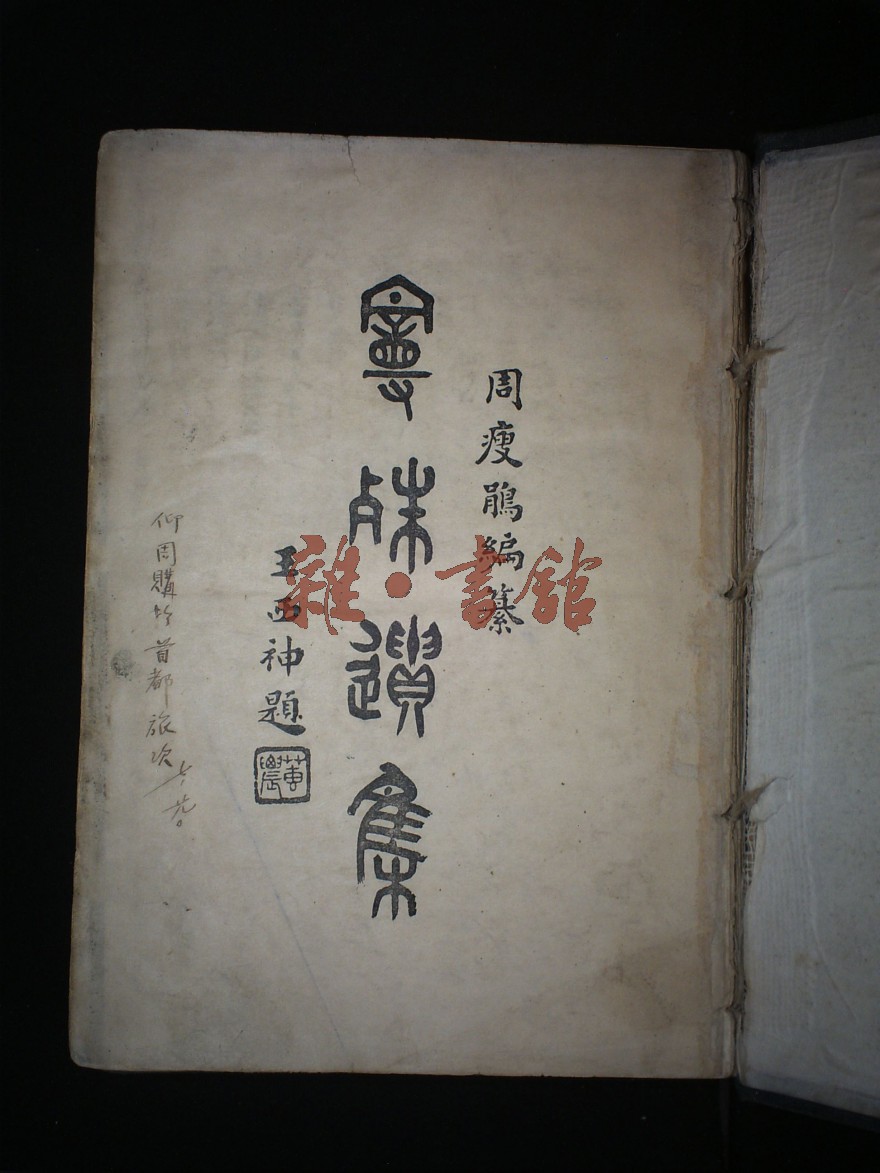 周瘦鵑編纂
曼殊遺集
王西神題
蓴農
仰周購於首都旅次
雜·書館